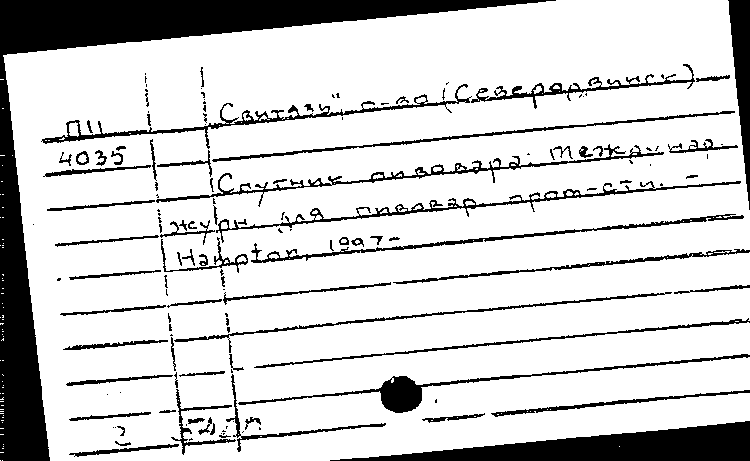 П11
4035
Свитязь", о-во (Северодвинск)
Спутник пивовара: Междунар.
журн. для пивовар. пром-сти. -
Hampton, 1997-
2